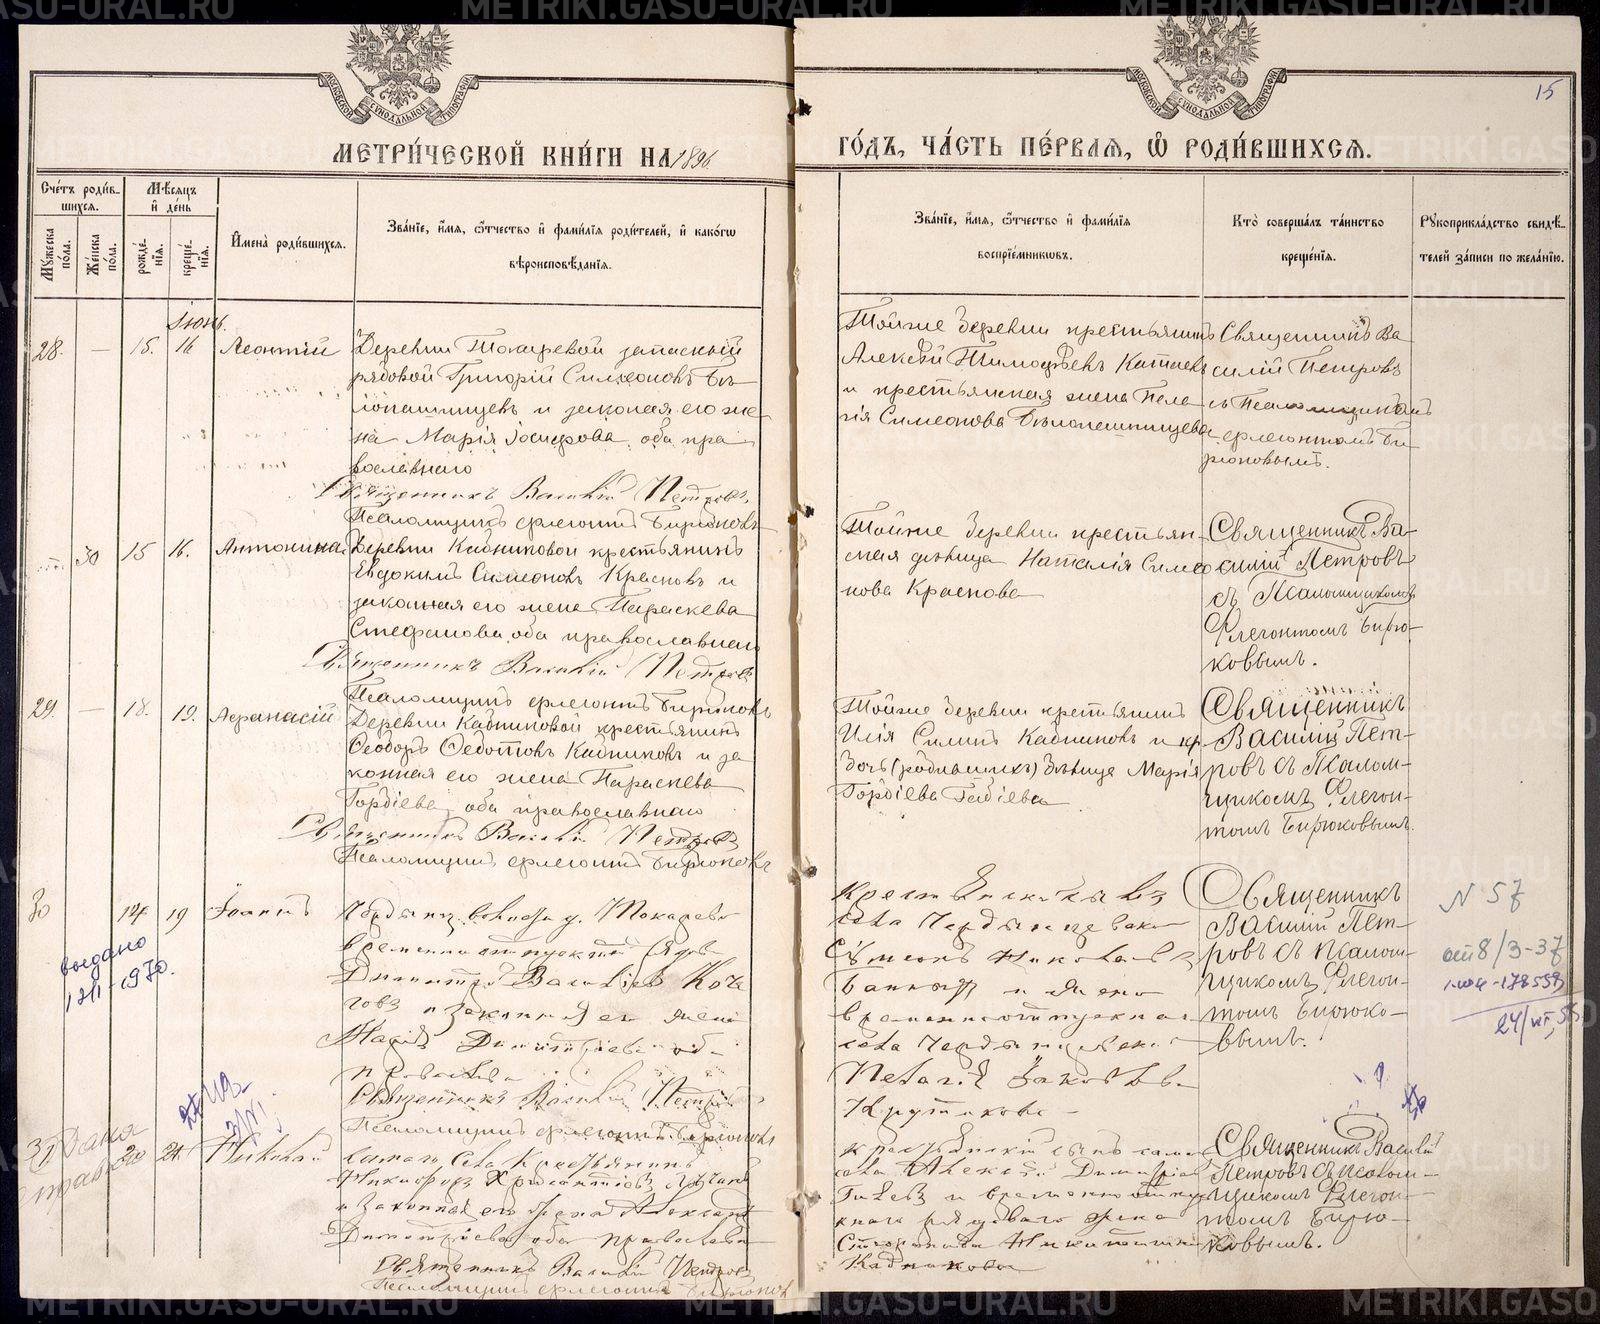 METRIKI.GASO-URAL.RU
15
МЕТРИ́ЧЕСКОЙ КНИ́ГИ НА 1896
ГО́ДЪ, ЧА́СТЬ ПЕ́РВАЯ, Ѡ РОДИ́ВШИХСЯ.
Сче́тъ роди́в-
шихся.
Мѣ́сяцъ
и҆ де́нь
Мꙋ́жеска
по́ла.
Же́нска
по́ла.
рожде́-
нїѧ.
креще́-
нїѧ.
И҆мена̀ роди́вшихся.
Зва́нїе, и҆́мѧ, ѻ҆́тчество и҆ фами́лїѧ роди́телей, и҆ како́гѡ
вѣроисповѣ́данїѧ.
Зва́нїе, и҆́мѧ, ѻ҆́тчество и҆ фами́лїѧ
воспрїе́мникѡвъ.
Кто̀ соверша́лъ та́инство
креще́нїѧ.
Рꙋкоприкла́дство свидѣ́-
телей за́писи по жела́нїю.
Іюнь.
28. — 15. 16 Леонтій
Деревни Токаревой запасный
рядовой Григорій Симеоновъ Бѣ-
лопашинцевъ и законная его же-
на Марія Іосифова, оба пра-
вославнаго
Священникъ Василій Петровъ
Псаломщикъ Флегонтъ Бирюковъ
Тойже деревни крестьянинъ
Алексѣй Тимофѣевъ Катаевъ
и крестьянская жена Пела-
гія Симеонова Бѣлопашинцева
Священникъ Ва-
силій Петровъ
съ Псаломщикомъ
Флегонтомъ Би-
рюковымъ.
30 15 16. Антонина
Деревни Кадниковой крестьянинъ
Евдокимъ Симеоновъ Красновъ и
законная его жена Параскева
Стефанова, оба православнаго
Священникъ Василій Петровъ
Псаломщикъ Флегонтъ Бирюковъ
Тойже деревни крестьян-
ская дѣвица Наталія Симео-
нова Краснова
Священникъ Ва-
силій Петровъ
съ Псаломщикомъ
Флегонтомъ Бирю-
ковымъ.
29. — 18. 19. Афанасій
Деревни Кадниковой крестьянинъ
Ѳеодоръ Ѳедотовъ Кадниковъ и за-
конная его жена Параскева
Гордіева, оба православнаго
Священникъ Василій Петровъ
Псаломщикъ Флегонтъ Бирюковъ
Тойже деревни крестьянинъ
Илія Силинъ Кадниковъ и кр.
дочь дѣвица Марія
Гордіева
Священникъ
Василій Пет-
ровъ съ Псалом-
щикомъ Флегон-
томъ Бирюковымъ.
30 14 19 Іоаннъ
волости д. Токарево
временно отпускной ряд.
Димитрій Василіевъ
и законная его жена
Марія Димитріева оба
православн.
Священникъ Василій Петровъ
Псаломщикъ Флегонтъ Бирюковъ
села
Симеонъ Николаевъ
и жена
временноотпускн.
села
Пелагія Іаковлева
Крутикова
Священникъ
Василій Пет-
ровъ съ Псалом-
щикомъ Флегон-
томъ Бирюко-
вымъ.
выдано
1/VII-1970.
N 57
от 8/3-37
24/VI, 55
31 20 21. Николай
Дана
справка
села крестьянинъ
Никифоръ Хрисанфовъ
и законная его жена Александра
Димитріева оба православн.
Священникъ Василій Петровъ
Псаломщикъ Флегонтъ Бирюковъ
крестьянскій сынъ
села Алексѣй Димитріевъ
и временно отпу-
скнаго рядоваго жена
Кадникова
Священникъ Василій
Петровъ съ псалом-
щикомъ Флегон-
томъ Бирю-
ковымъ.
METRIKI.GASO-URAL.RU